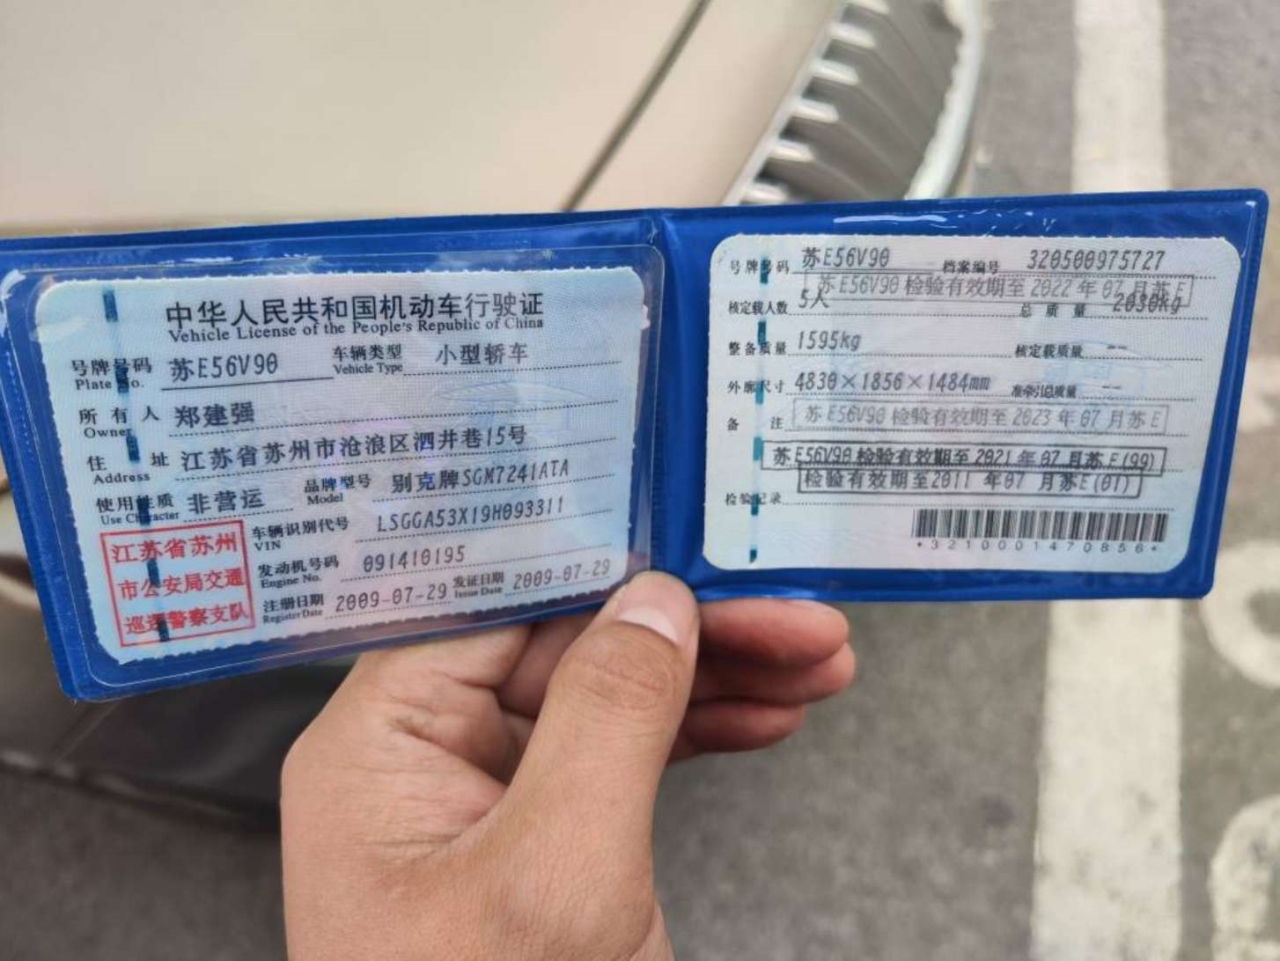 中华人民共和国机动车行驶证
Vehicle License of the People's Republic of China
号牌号码 苏E56V90 车辆类型 小型轿车
Plate No. Vehicle Type
所有人 郑建强
Owner
住址 江苏省苏州市沧浪区泗井巷15号
Address
使用性质 非营运 品牌型号 别克牌SGM7241ATA
Use Character Model
江苏省苏州
市公安局交通
巡逻警察支队
车辆识别代号 LSGGA53X19H093311
VIN
发动机号码 091410195
Engine No.
注册日期 2009-07-29 发证日期 2009-07-29
Register Date Issue Date
号牌号码 苏E56V90 档案编号 320500975727
苏E56V90 检验有效期至 2022 年 07 月苏E
核定载人数 5人 总质量 2030kg
整备质量 1595kg 核定载质量 --
外廓尺寸 4830×1856×1484mm 准牵引总质量 --
备注 苏E56V90 检验有效期至2023 年 07 月苏E
苏E56V90 检验有效期至2021年 07 月苏E(99)
检验有效期至2011 年07 月苏E(01)
检验记录
*3210001470856*